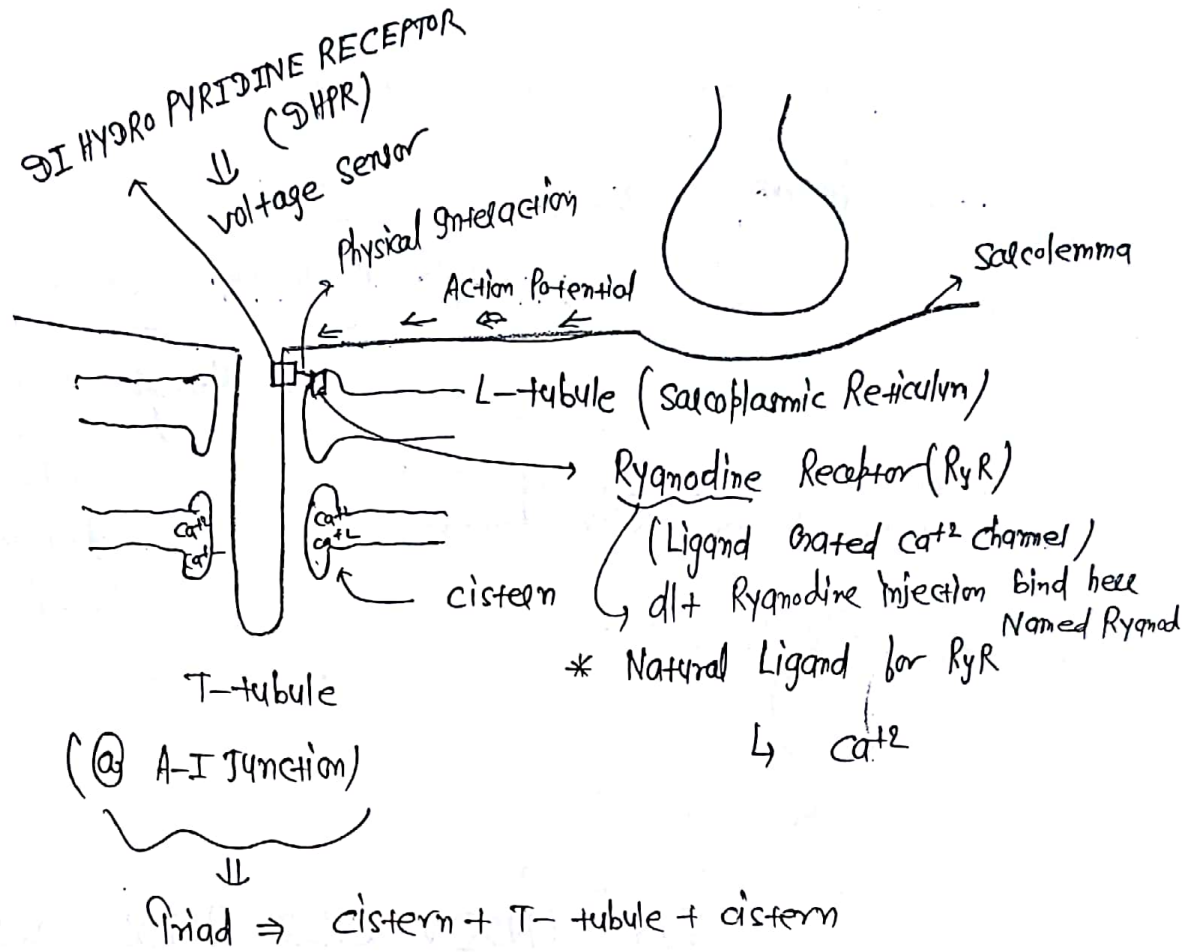 DI HYDRO PYRIDINE RECEPTOR
(DHPR)
⇓
voltage sensor
Physical Interaction
Action Potential
Sarcolemma
L-tubule (Sarcoplasmic Reticulum)
Ryanodine Receptor (RyR)
(Ligand Gated Ca+2 channel)
d/t Ryanodine injection bind here
Named Ryanod
* Natural Ligand for RyR
↳ Ca+2
Ca+2
Ca+
Ca+2
Ca+2
cistern
T-tubule
(@ A-I Junction)
⇓
Triad ⇒ cistern + T-tubule + cistern